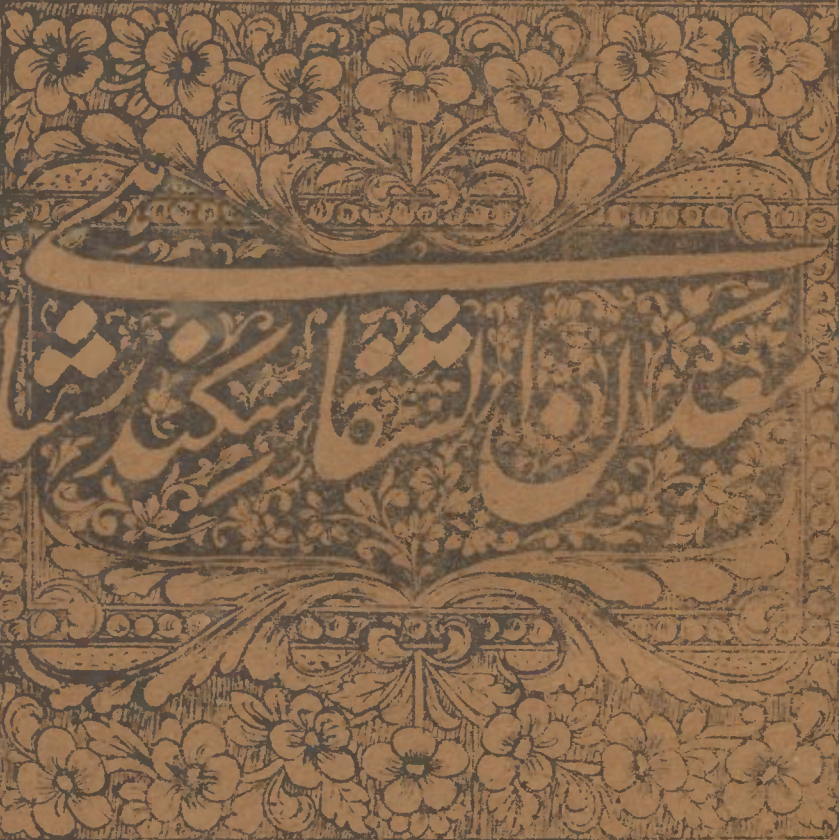 معدن الشفا سکندر شاهی